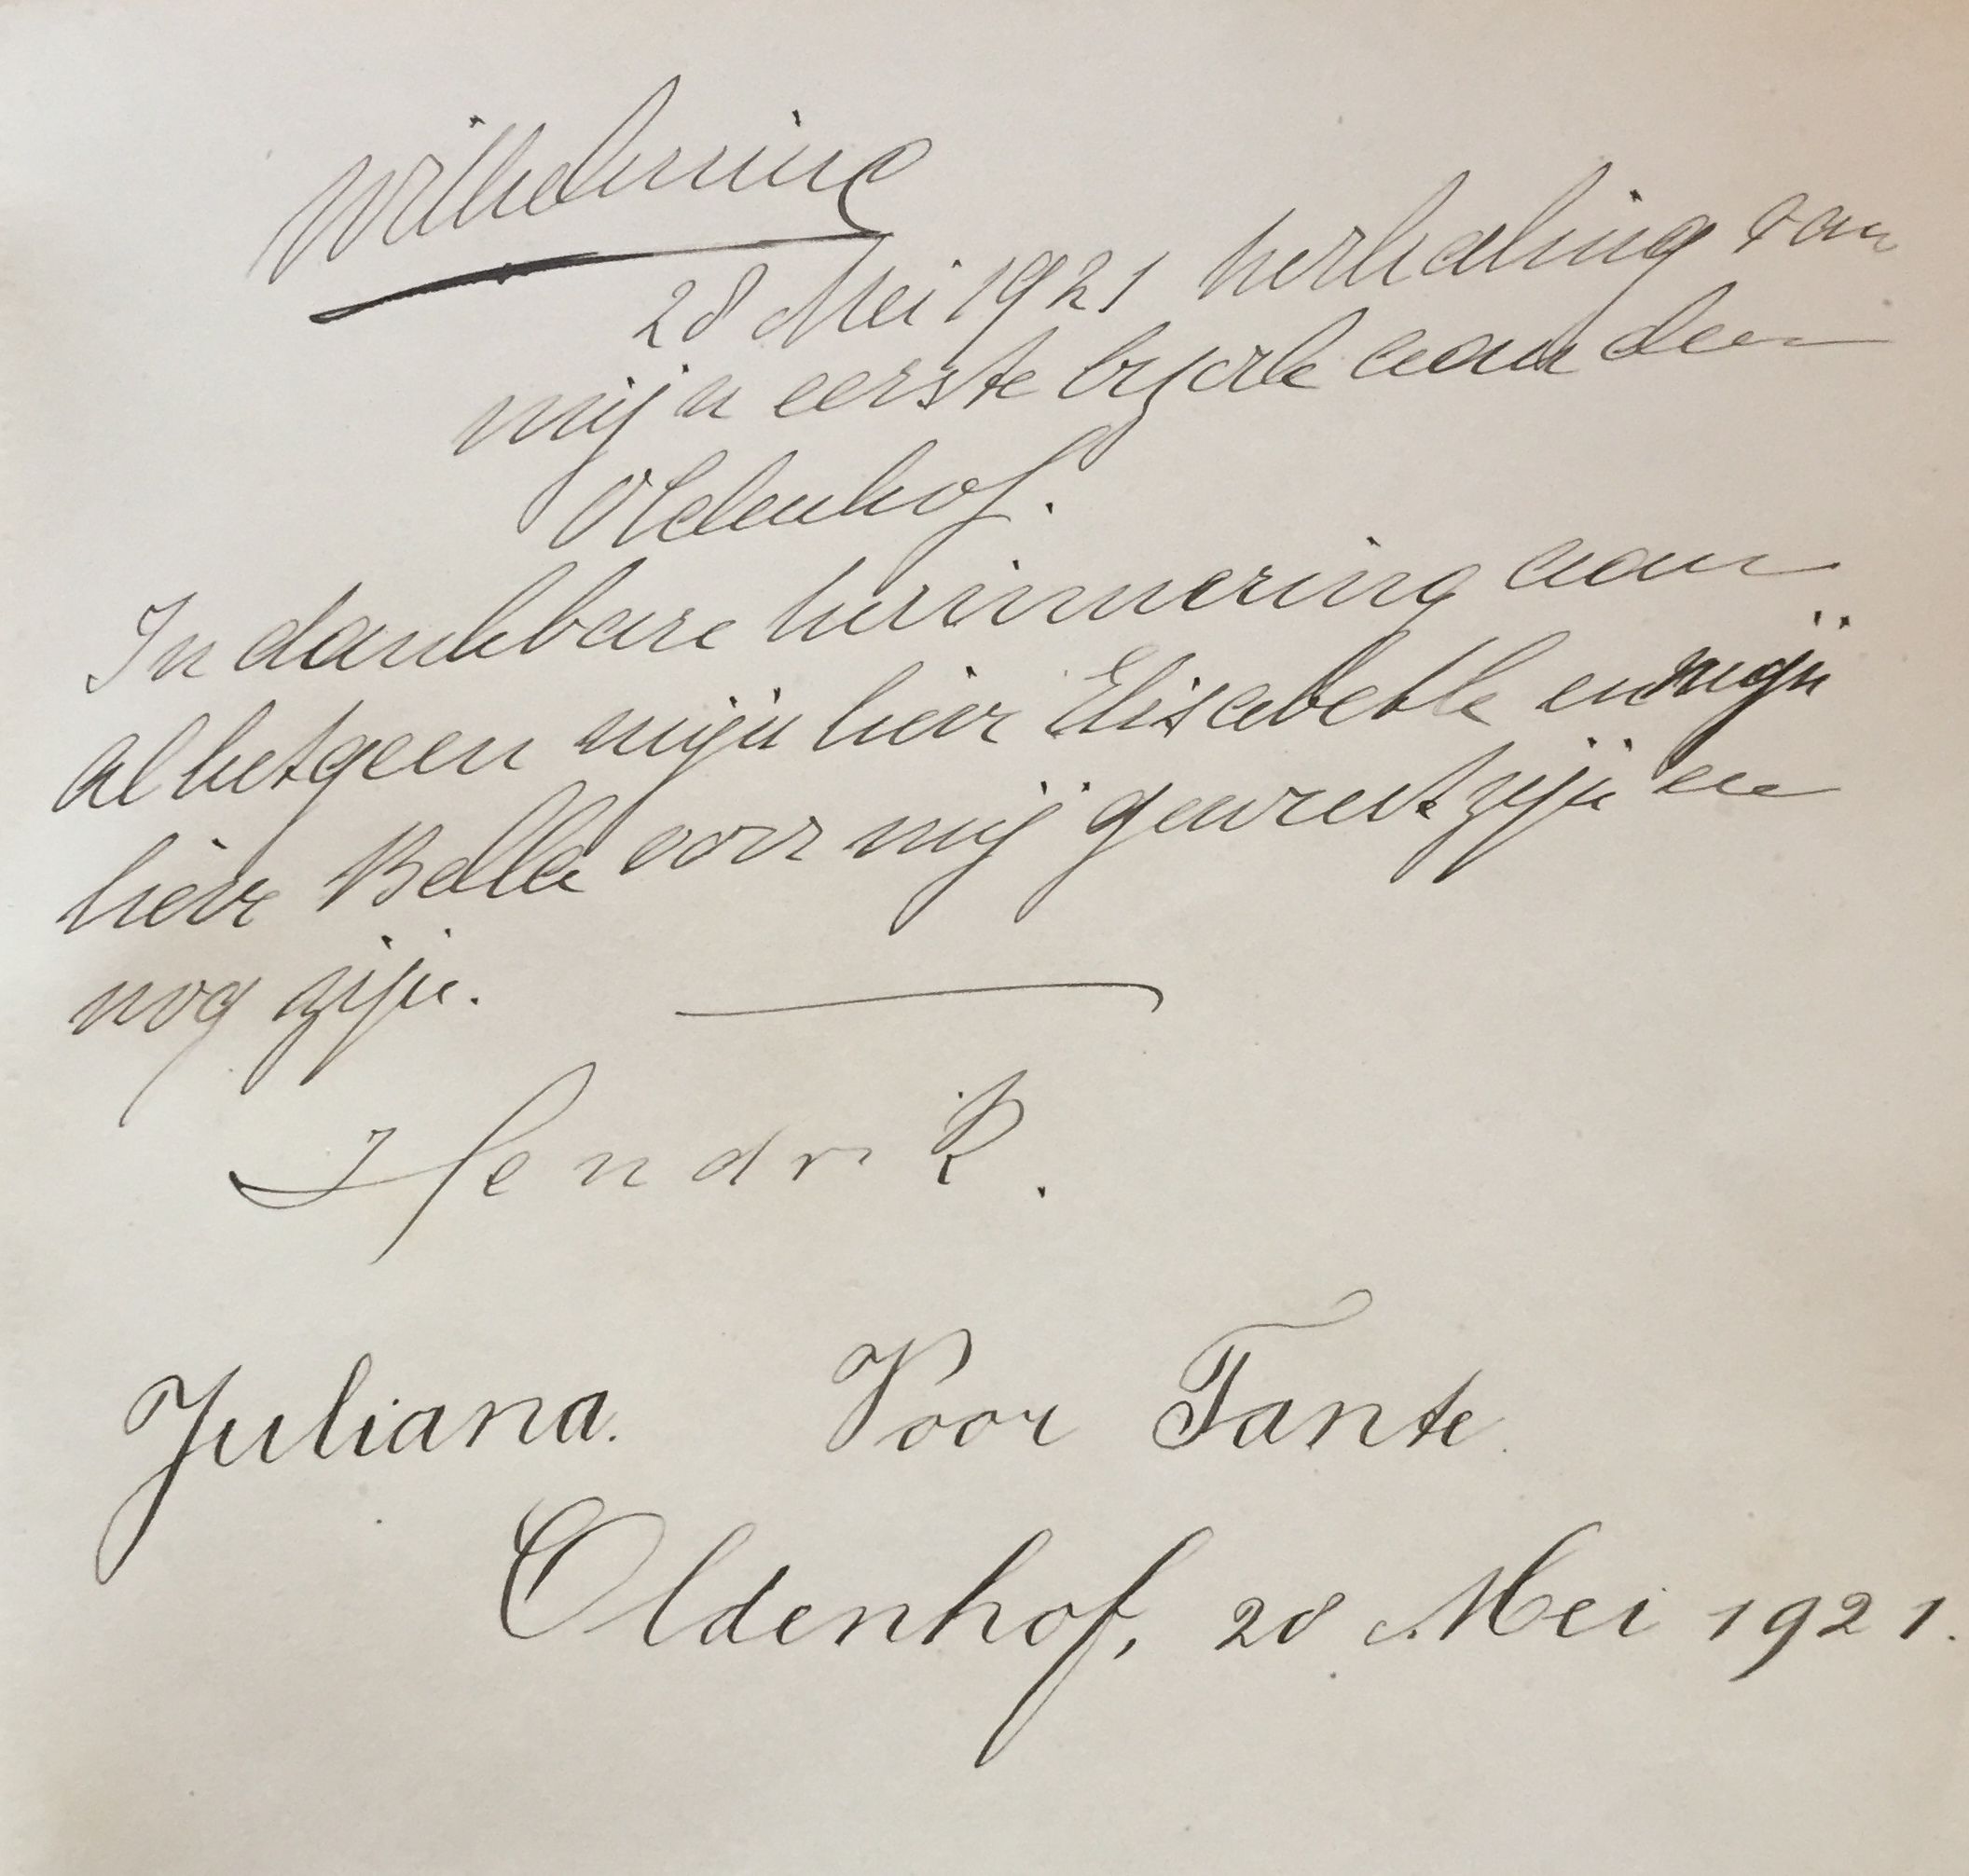 Wilhelmina
28 Mei 1921 herhaling van
mijn eerste bezoek aan den
Oldenhof.
In dankbare herinnering aan
al hetgeen mijn lieve Elisabeth en mijn
lieve Bella voor mij geweest zijn en
nog zijn.
Hendrik.
Juliana. Voor Tante
Oldenhof, 28 Mei 1921.